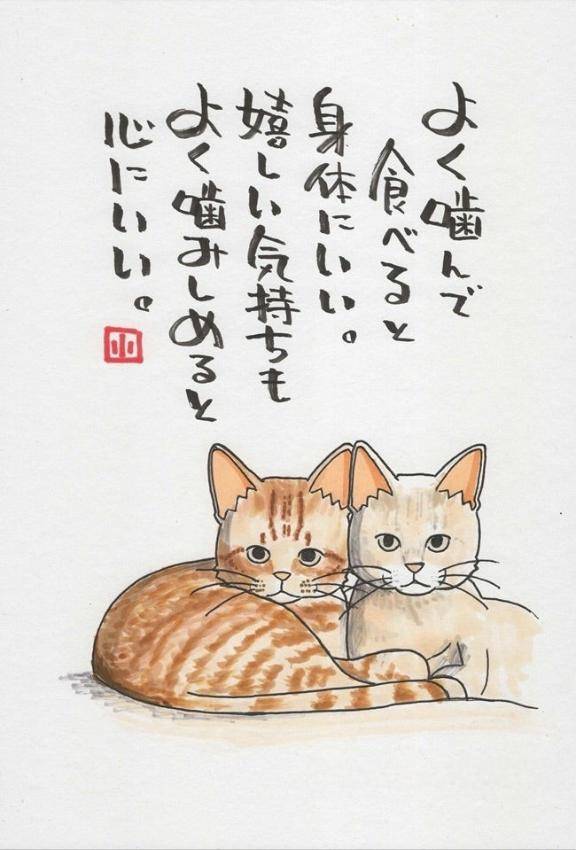 よく噛んで
食べると
身体にいい。
嬉しい気持ちも
よく噛みしめると
心にいい。
小